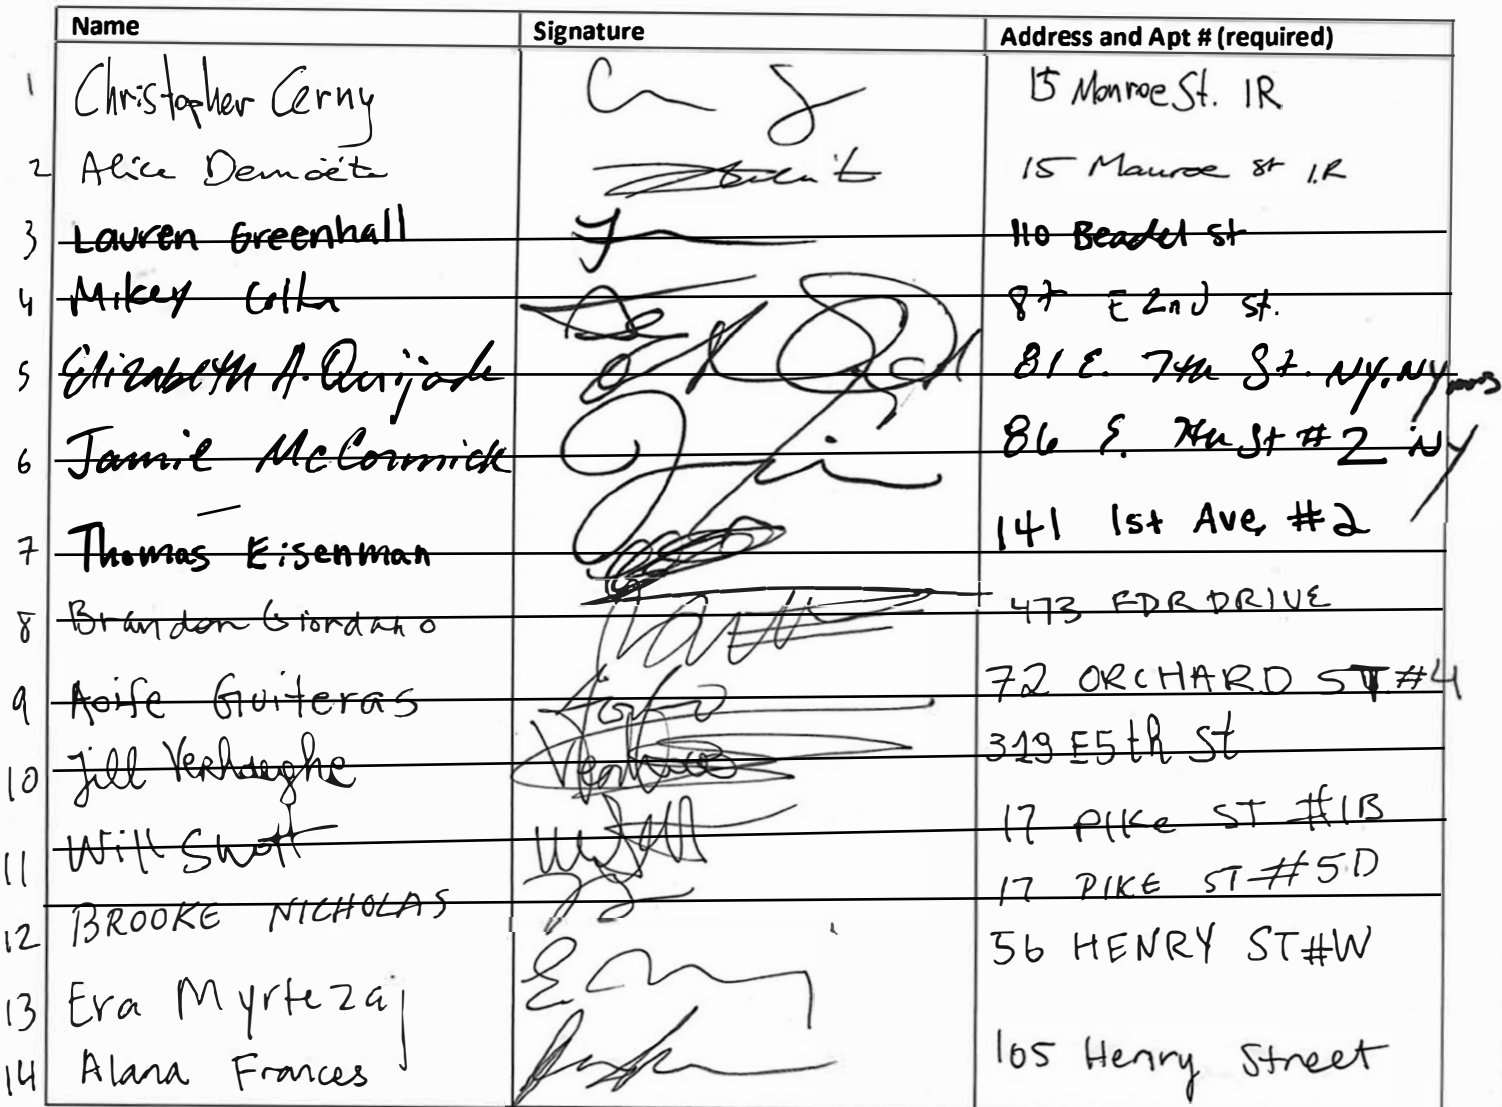 Name Signature Address and Apt # (required)
1 Christopher Cerny 15 Monroe St. 1R
2 Alice Demoëte 15 Monroe St 1R
3 Lauren Greenhall 110 Beadel St
4 Mikey 87 E 2nd St.
5 Elizabeth A. Quijada 81 E. 7th St. NY, NY
6 Jamie McCormick 86 E. 7th St #2 NY
7 Thomas Eisenman 141 1st Ave, #2
8 Brandon Giordano 473 FDR DRIVE
9 Aoife Guiteras 72 ORCHARD ST #4
10 Jill Verhaeghe 319 E5th St
11 Will Shott 17 PIKE ST #1B
12 BROOKE NICHOLAS 17 PIKE ST #5D
13 Era Myrtezaj 56 HENRY ST #W
14 Alana Frances 105 Henry Street